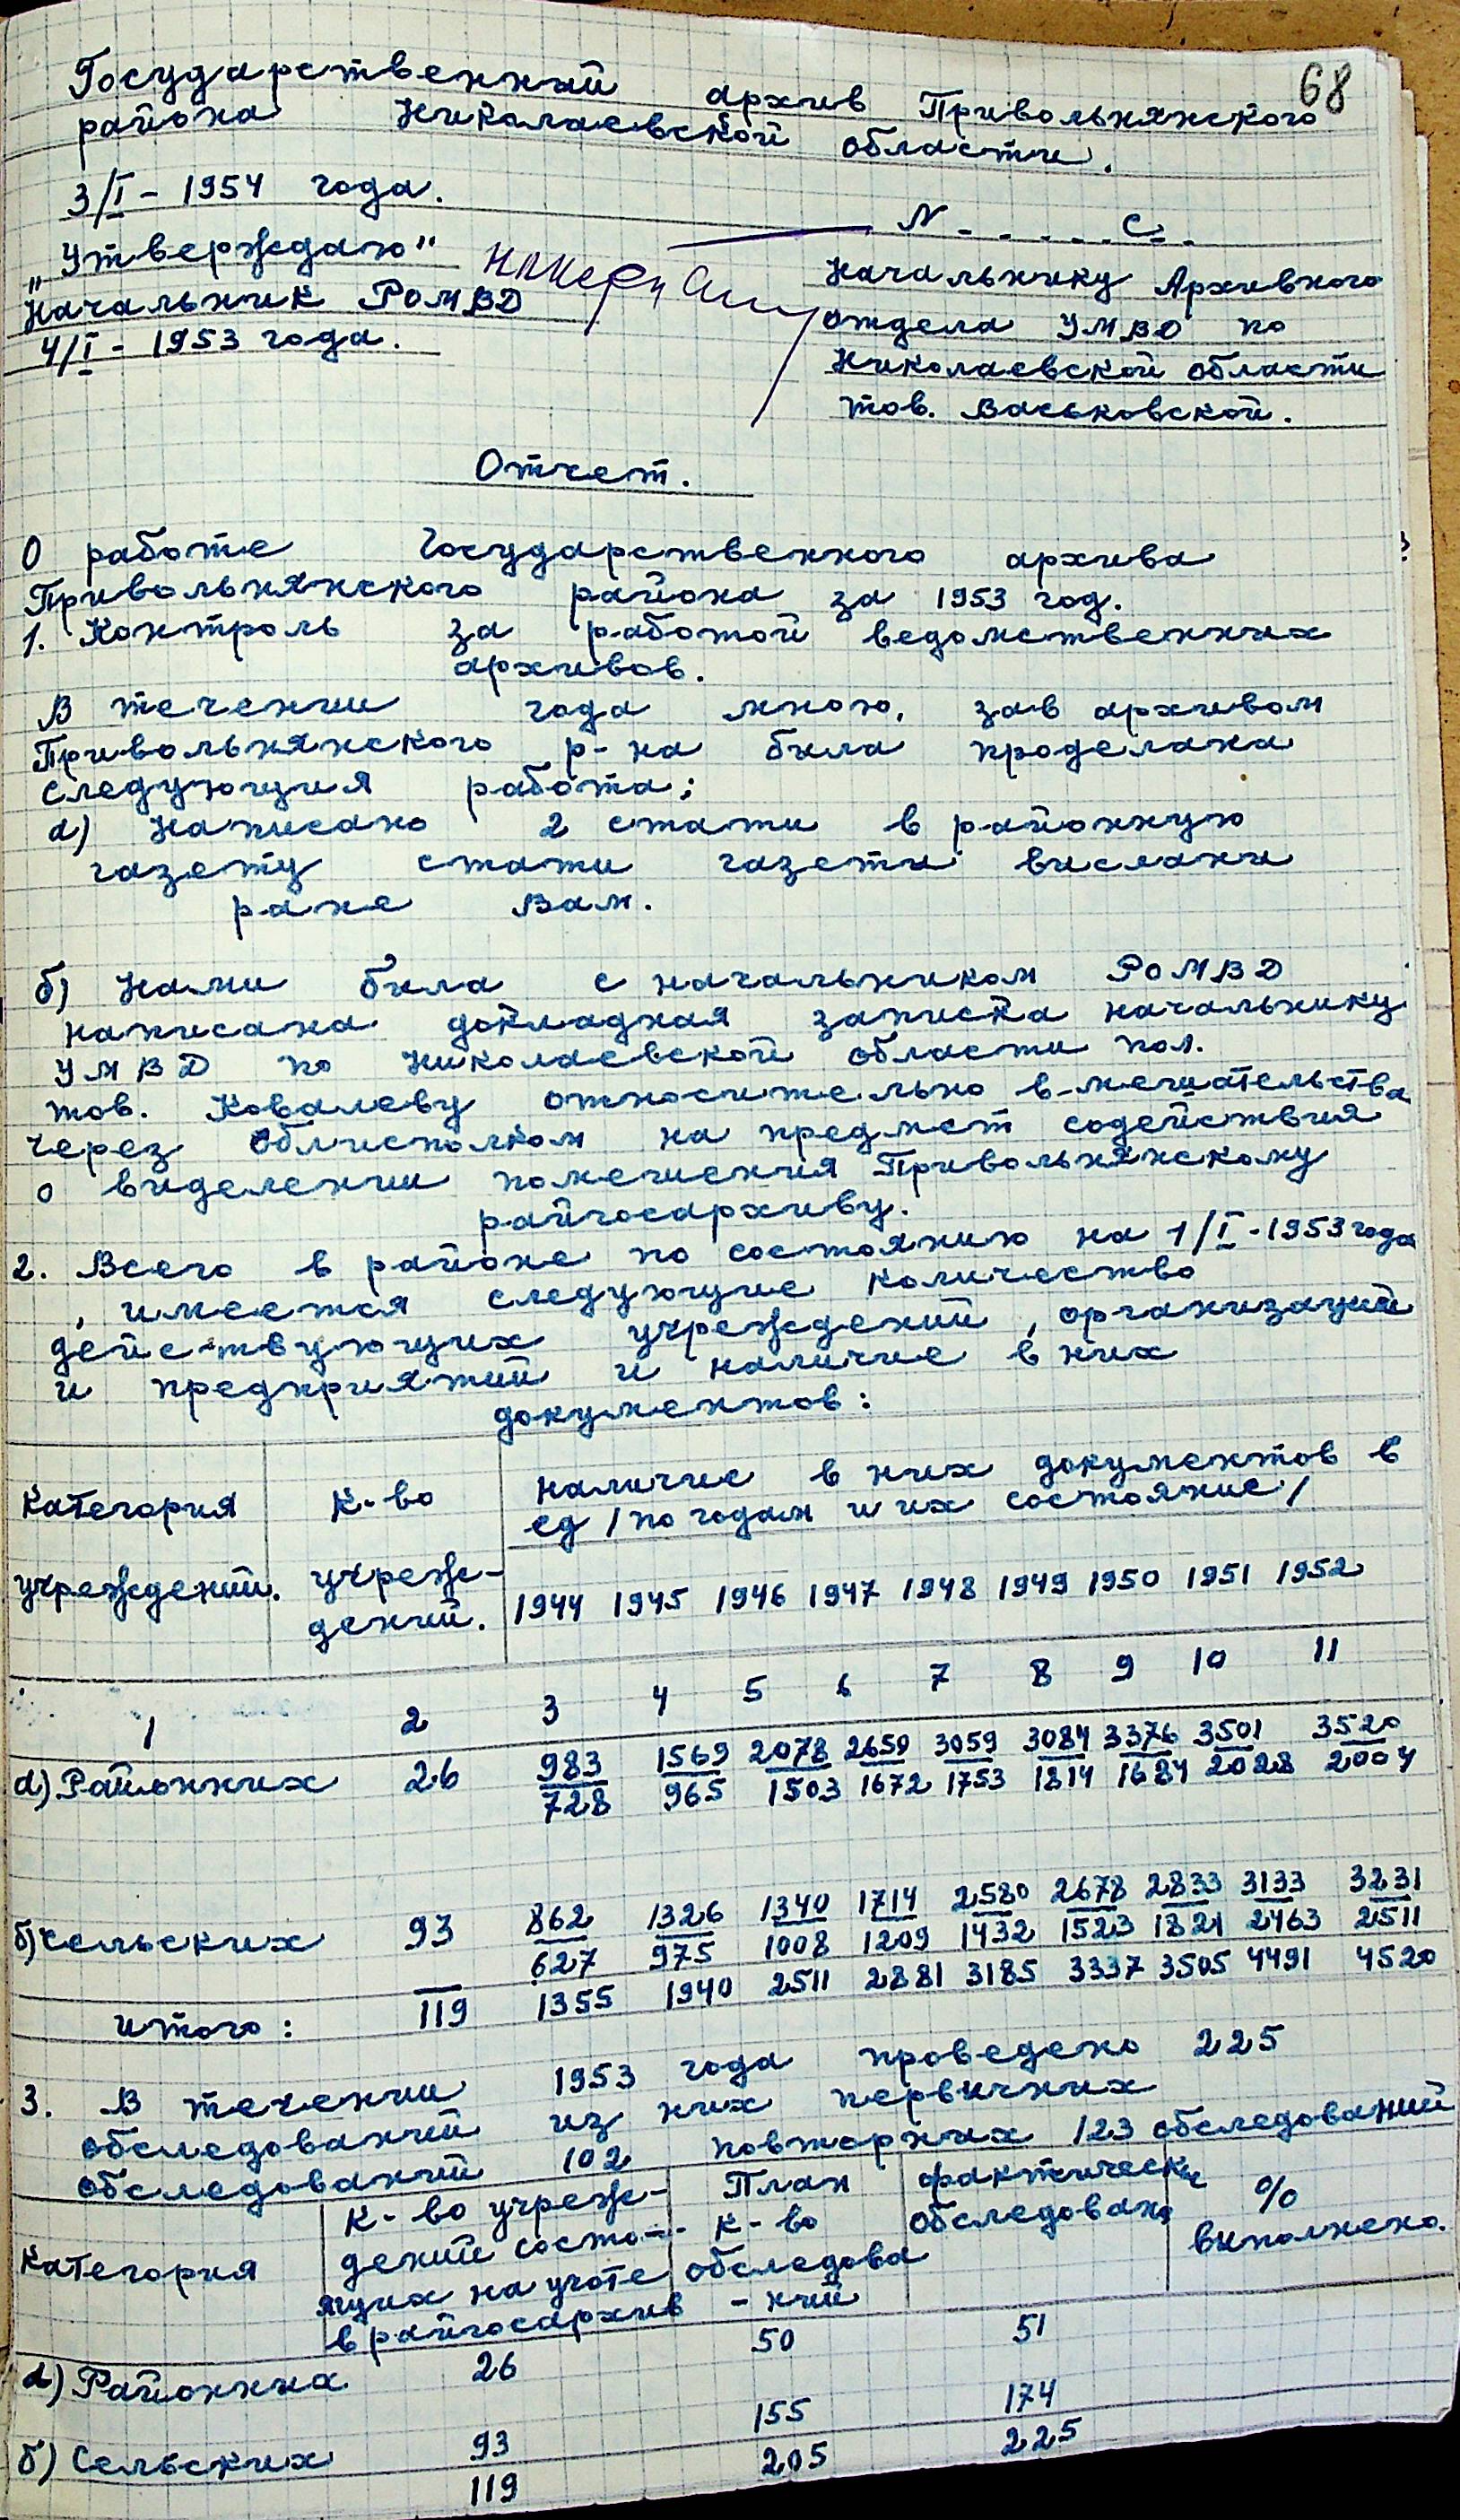 68
Государственный архив Привольнянского
района Николаевской области.
3/I - 1954 года.
N - . . . . . с = .
„Утверждаю"
Начальник РОМВД
4/I - 1953 года.
Начальнику Архивного
отдела УМВД по
Николаевской области
тов. Васьковской.
Отчет.
О работе Государственного архива
Привольнянского района за 1953 год.
1. Контроль за работой ведомственних
архивов.
В течении года мною, зав архивом
Привольнянского р-на била проделана
следующия работа;
а) Написано 2 стати в районную
газету стати газети висланы
ране Вам.
б) Нами била с начальником РОМВД
написана докладная записка начальнику
УМВД по Николаевской области пол.
тов. Ковалеву относительно в-мешательства
через Облисполком на предмет содействия
о виделении помещения Привольнянскому
райгосархиву.
2. Всего в районе по состоянию на 1/I-1953 года
, имеется следующие количество
действующих учреждений, организаций
и предприятий и наличие в них
документов:
Категория К-во наличие в них документов в
ед /по годам и их состояние/
учреждений. учреж-
дений. 1944 1945 1946 1947 1948 1949 1950 1951 1952
1 2 3 4 5 6 7 8 9 10 11
а) Районних 26 983 1569 2078 2659 3059 3084 3376 3501 3520
728 965 1503 1672 1753 1814 1684 2028 2004
б) Сельских 93 862 1326 1340 1714 2580 2678 2833 3133 3231
627 975 1008 1209 1432 1523 1821 2463 2511
итого: 119 1355 1940 2511 2881 3185 3337 3505 4491 4520
3. В течении 1953 года проведено 225
обследований из них первичних
обследований 102 повторних 123 обследований
Категория К-во учреж-
дений состо-
ящих на учоте
в райгосархив
План
к-во
обследова
- ний
фактически
обследован.
%
выполнено.
а) Районних 26 50 51
б) Сельских 93 155 174
119 205 225